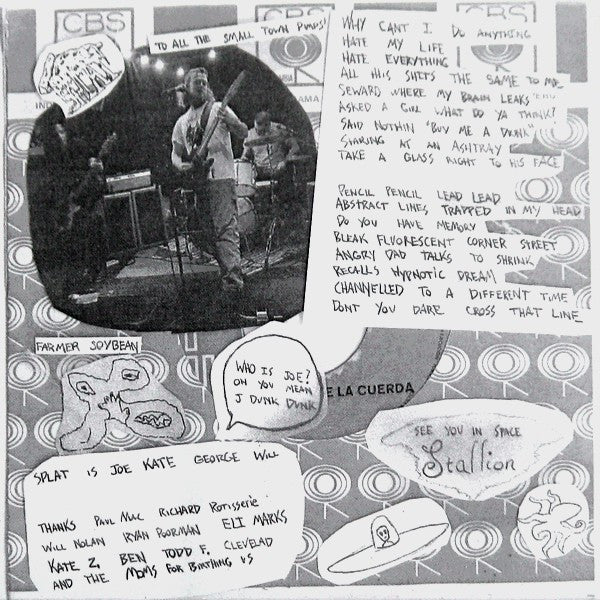 CBS
TO ALL THE SMALL TOWN PUNKS!
WHY CANT I DO ANYTHING
HATE MY LIFE
HATE EVERYTHING
ALL THIS SHITS THE SAME TO ME
SEWARD WHERE MY BRAIN LEAKS
ASKED A GIRL WHAT DO YA THINK?
SAID NOTHIN 'BUY ME A DRINK'
STARING AT AN ASHTRAY
TAKE A GLASS RIGHT TO HIS FACE
PENCIL PENCIL LEAD LEAD
ABSTRACT LINES TRAPPED IN MY HEAD
DO YOU HAVE MEMORY
BLEAK FLUORESCENT CORNER STREET
ANGRY DAD TALKS TO SHRINK
RECALLS HYPNOTIC DREAM
CHANNELLED TO A DIFFERENT TIME
DONT YOU DARE CROSS THAT LINE
FARMER SOYBEAN
WHO IS JOE?
OH YOU MEAN
J DUNK DUNK
E LA CUERDA
SEE YOU IN SPACE
Stallion
SPLAT IS JOE KATE GEORGE WILL
THANKS PAUL MAC RICHARD ROTISSERIE
WILL NOLAN RYAN POORMAN ELI MARKS
KATE Z, BEN TODD F, CLEVELAD
AND THE MOMS FOR BIRTHING US